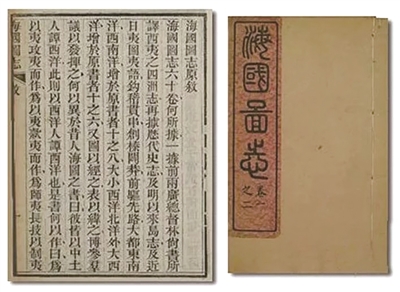 海國圖志
卷一
之二
海國圖志原敘
海國圖志六十卷何所據一據前兩廣總督林尚書所
譯西夷之四洲志再據歷代史志及明以來島志及近
日夷圖夷語鈎稽貫串創榛闢莽前驅先路大都東南
洋西南洋增於原書者十之八大小西洋北洋外大西
洋增於原書者十之六又圖以經之表以緯之博參羣
議以發揮之何以異於昔人海圖之書曰彼皆以中土
人譚西洋此則以西洋人譚西洋也是書何以作曰爲
以夷攻夷而作爲以夷款夷而作爲師夷長技以制夷
海國圖志 敘